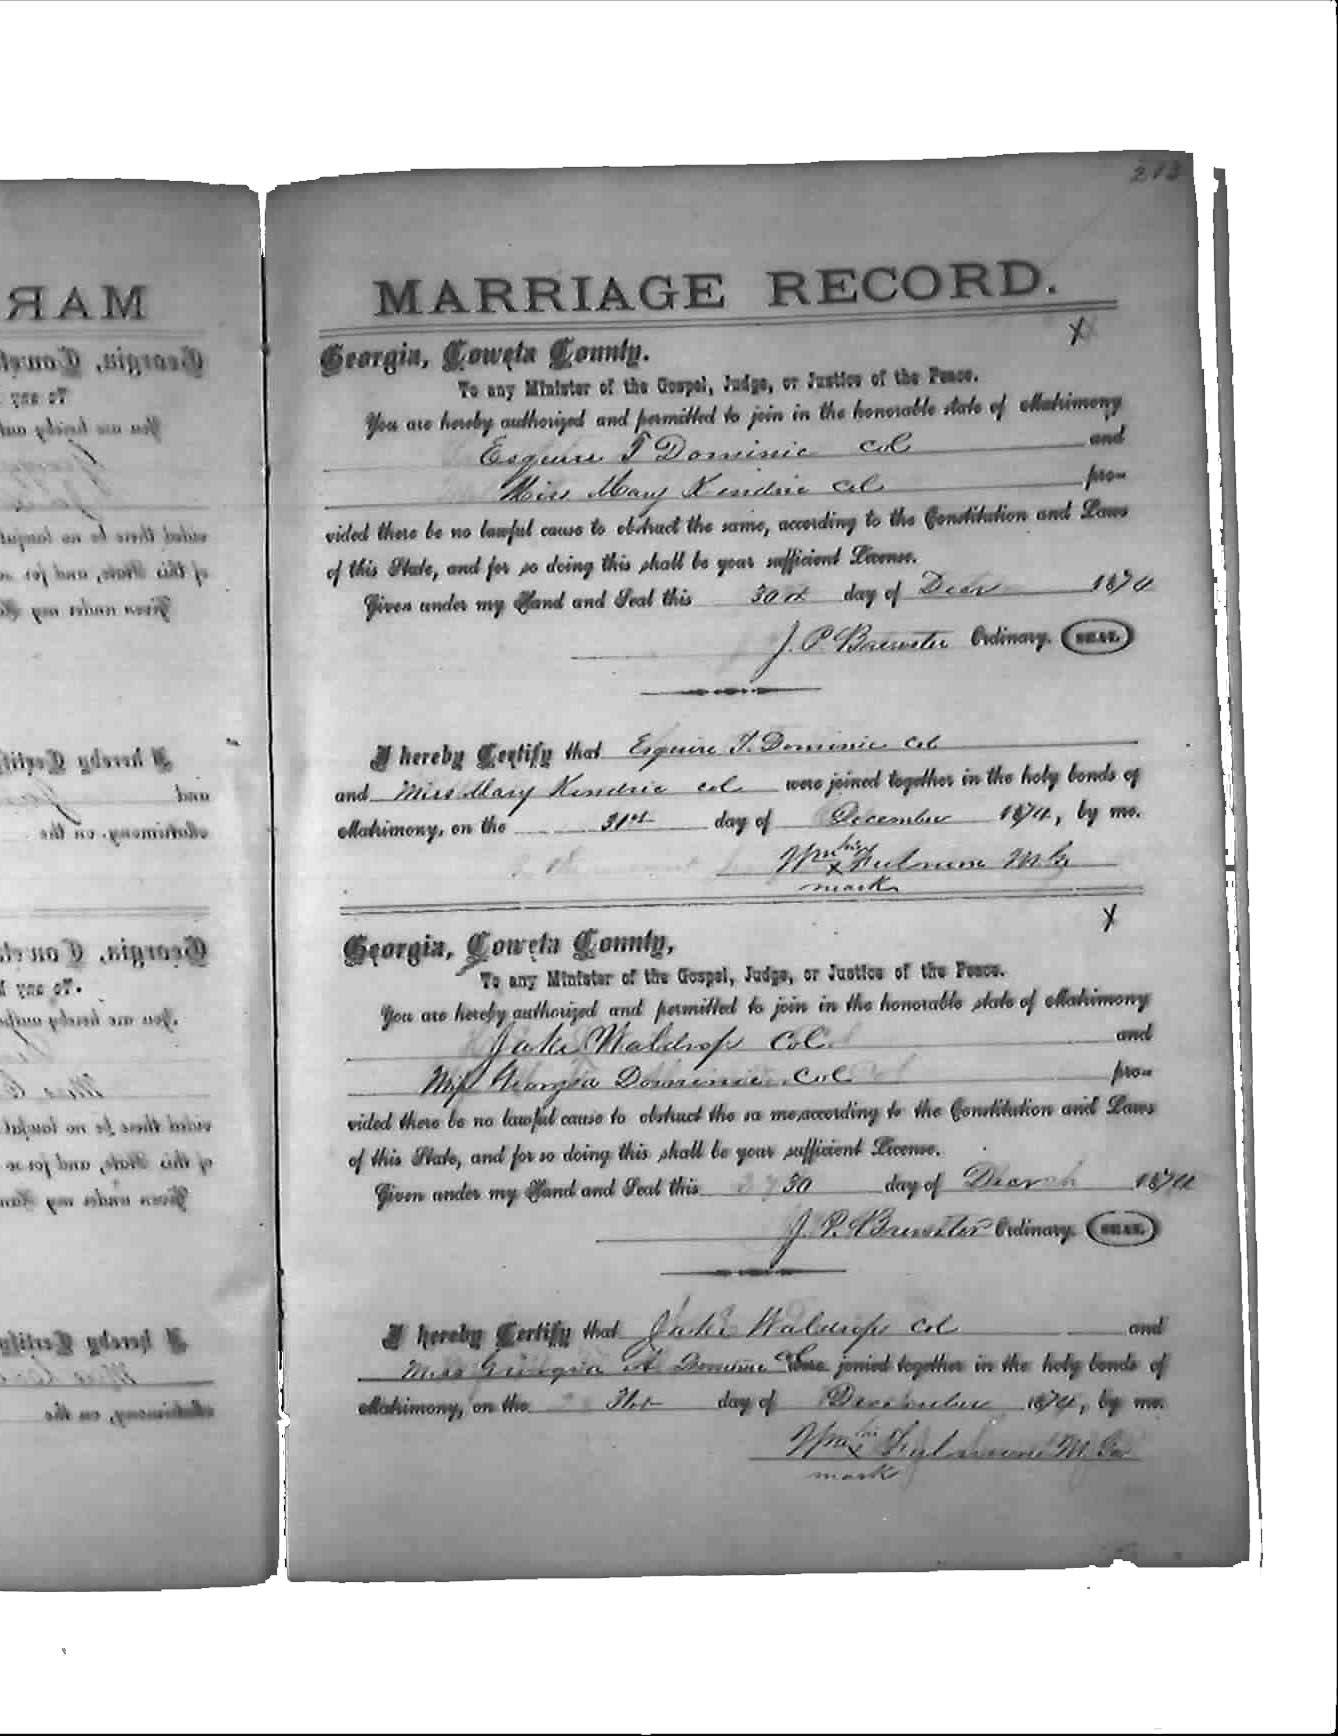 213
MARRIAGE RECORD.
X
Georgia, Coweta County.
To any Minister of the Gospel, Judge, or Justice of the Peace.
You are hereby authorized and permitted to join in the honorable state of Matrimony
Esquire T Dominic col and
Miss Mary Kendric col pro-
vided there be no lawful cause to obstruct the same, according to the Constitution and Laws
of this State, and for so doing this shall be your sufficient License.
Given under my Hand and Seal this 30th day of Decr 1874
J. P. Brewster Ordinary. SEAL.
I hereby Certify that Esquire T. Dominic col
and Miss Mary Kendric col were joined together in the holy bonds of
Matrimony, on the 31st day of December 1874, by me.
Wm his X Fulmore M.G.
mark
X
Georgia, Coweta County,
To any Minister of the Gospel, Judge, or Justice of the Peace.
You are hereby authorized and permitted to join in the honorable state of Matrimony
Jake Waldrop Col. and
Miss Georgia Dominic. Col pro-
vided there be no lawful cause to obstruct the sa me, according to the Constitution and Laws
of this State, and for so doing this shall be your sufficient License.
Given under my Hand and Seal this 30 day of Decr 1874
J. P. Brewster Ordinary. SEAL.
I hereby Certify that Jake Waldrop col and
Miss Georgia A Dominic Col were jonied together in the holy bonds of
Matrimony, on the 31st day of December 1874, by me.
Wm his X Fulmore M.G.
mark